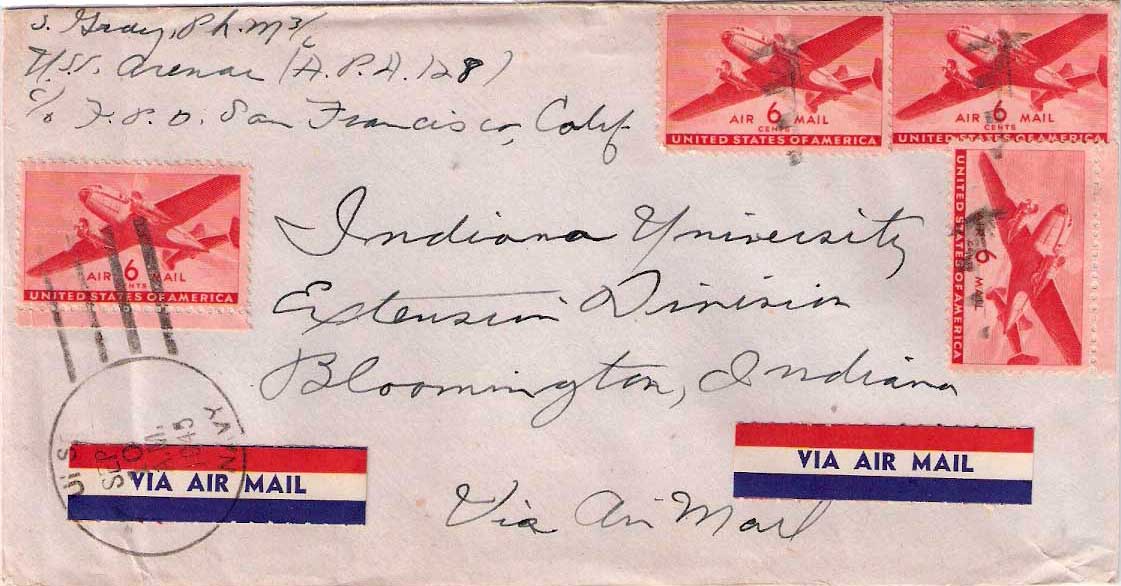 S. Gray, Ph. M 3/c
U.S.S. Arenac (A.P.A. 128)
c/o F.P.O. San Francisco, Calif.
AIR 6 MAIL
CENTS
UNITED STATES OF AMERICA
AIR 6 MAIL
CENTS
UNITED STATES OF AMERICA
AIR 6 MAIL
CENTS
UNITED STATES OF AMERICA
6 MAIL
UNITED STATES OF AMERICA
Indiana University
Extension Division
Bloomington, Indiana
Via Air Mail
VIA AIR MAIL
VIA AIR MAIL
U.S. NAVY
SEP